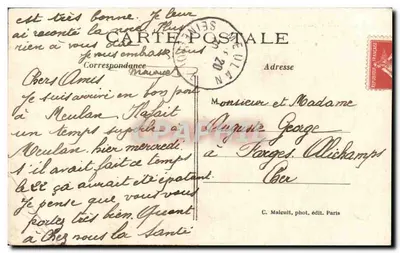 est très bonne. Je leur
ai raconté la noce. Plus
rien à vous dire
Je vous embrasse tous
Maurice
CARTE POSTALE
Correspondance
Adresse
MEULAN
SEINE
20
Chers Amis,
Je suis arrivé en bon port
à Meulan. Il fait
un temps superbe à
Meulan, hier mercredi
s'il avait fait ce temps
là ça aurait été épatant.
Je pense que vous vous
portez très bien. Quant
à chez nous la santé
Monsieur et Madame
Auguste George
à Farges Allichamps
Cher
C. Malcuit, phot, édit. Paris